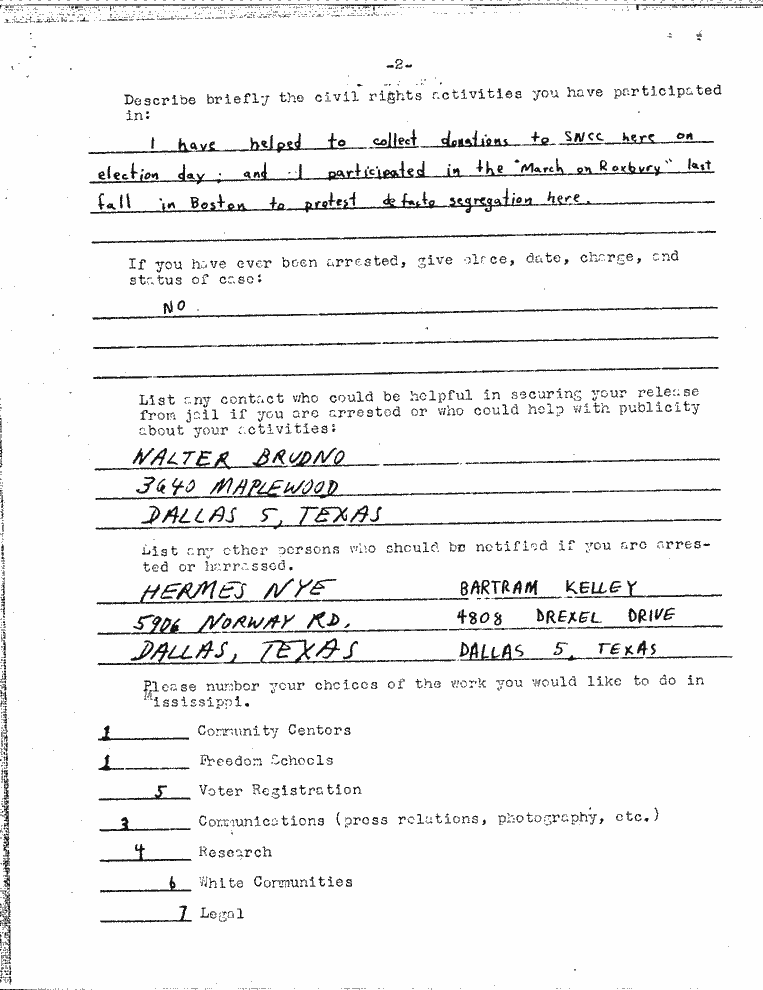 -2-
Describe briefly the civil rights activities you have participated
in:
I have helped to collect donations to SNCC here on
election day ; and I participated in the "March on Roxbury" last
fall in Boston to protest de facto segregation here.
If you have ever been arrested, give place, date, charge, and
status of case:
NO.
List any contact who could be helpful in securing your release
from jail if you are arrested or who could help with publicity
about your activities:
WALTER BRUDNO
3640 MAPLEWOOD
DALLAS 5, TEXAS
List any other persons who should be notified if you are arres-
ted or harrassed.
HERMES NYE BARTRAM KELLEY
5906 NORWAY RD. 4808 DREXEL DRIVE
DALLAS, TEXAS DALLAS 5, TEXAS
Please number your choices of the work you would like to do in
Mississippi.
1 Community Centors
1 Freedom Schools
5 Voter Registration
3 Communications (press relations, photography, etc.)
4 Research
6 White Communities
7 Legal